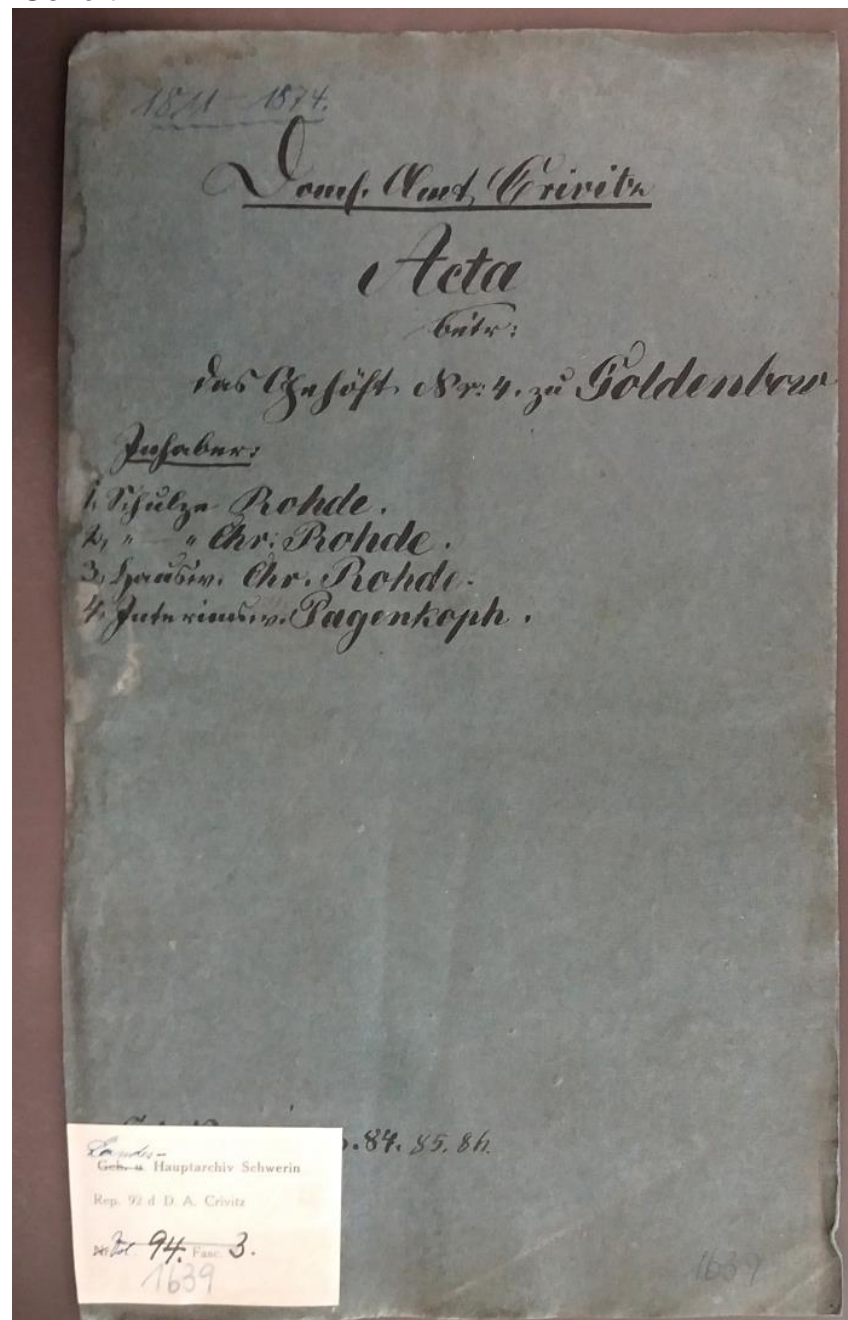 1811 – 1874.
Dom. Amt Crivitz
Acta
betr:
das Gehöft Nr: 4. zu Goldenbow
Inhaber:
1, Schulze Rohde.
2, " — " Chr: Rohde.
3, Hausw. Chr. Rohde.
4, Interimsw. Pagenkoph.
84. 85. 86.
Landes-
Geh. u. Hauptarchiv Schwerin
Rep. 92 d D. A. Crivitz
Nr. Vol. 94. Fasc. 3.
1639
1639